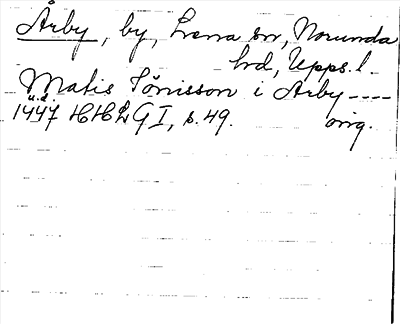 Årby, by, Lena sn, Norunda
hd, Upps. l.
Matis Jönisson i Arby ----
u.d.
1447 HHLGI, s. 49. orig.